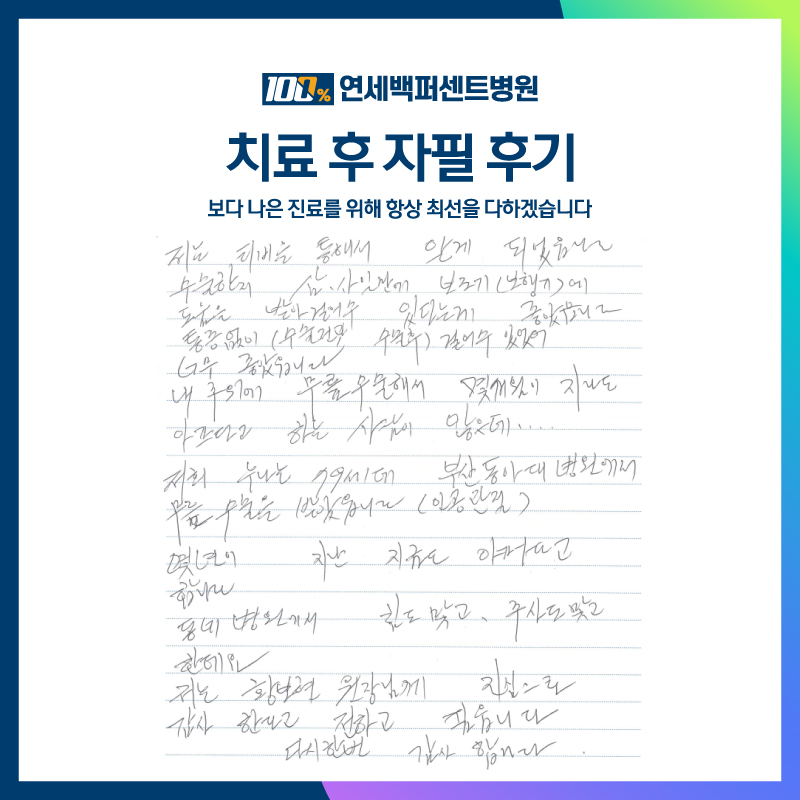 100% 연세백퍼센트병원
치료 후 자필 후기
보다 나은 진료를 위해 항상 최선을 다하겠습니다
저는 티비를 통해서 알게 되었읍니다
수술한지 삼.사일만에 보조기(보행기)에
도움을 받아 걸어수 있다는게 좋았읍니다
통증없이 (수술전과 수술후) 걸어수 있었어
너무 좋았읍니다
내 주위에 무릎수술해서 몇개월이 지나도
아프다고 하는 사람이 많은데....
저희 누나는 79세인데 부산동아대 병원에서
무릎 수술을 받았읍니다 (인공관절)
몇년이 지난 지금도 아프다고
합니다
동네 병원에서 침도 맞고, 주사도 맞고
한데요
저는 황보현 원장님께 진심으로
감사 한다고 전하고 싶읍니다
다시한번 감사 합니다.